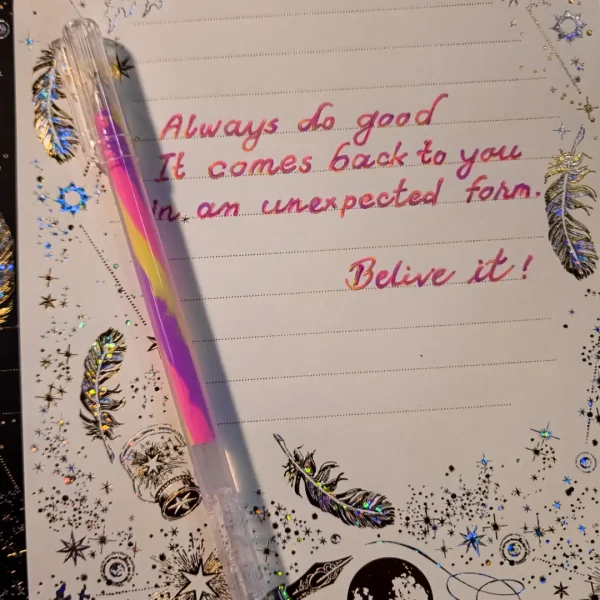 Always do good
It comes back to you
in an unexpected form.
Belive it!